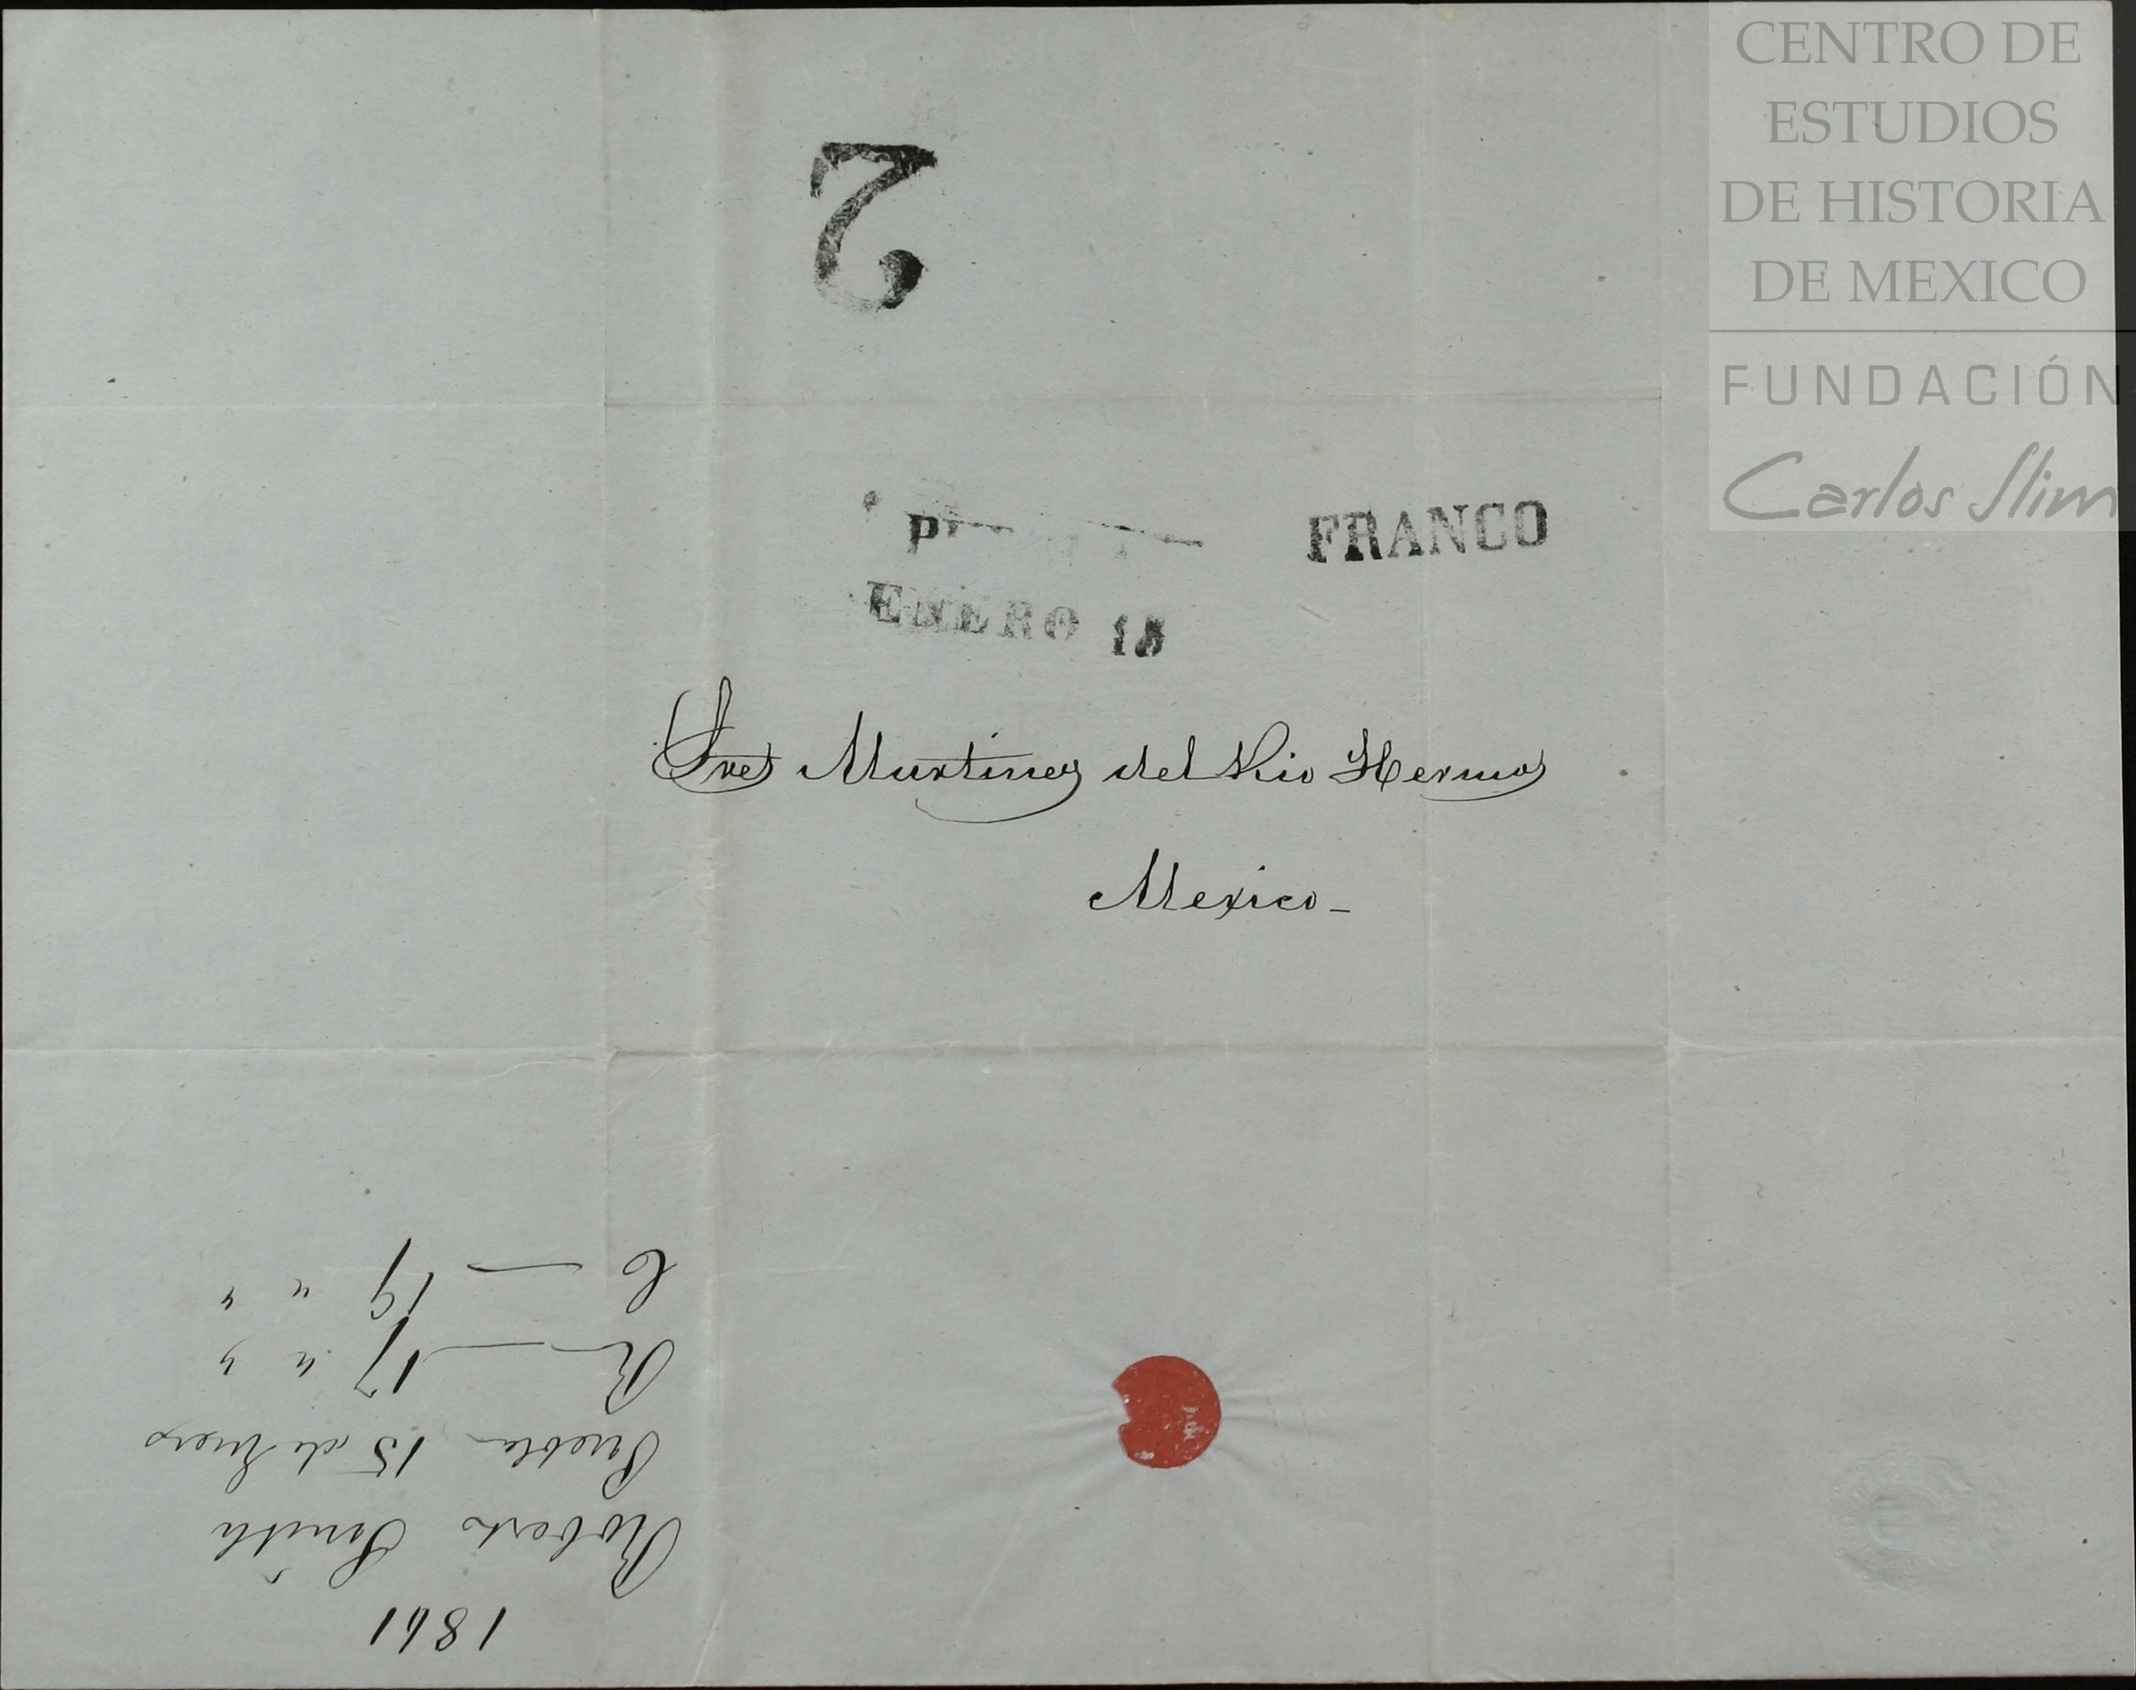 CENTRO DE
ESTUDIOS
DE HISTORIA
DE MEXICO
FUNDACIÓN
Carlos Slim
2
FRANCO
ENERO 15
Sres Martinez del Rio Hermos
Mexico-
1861
Roberto Smith
Puebla 15 de Enero
R — 17 " "
C — 19 " "